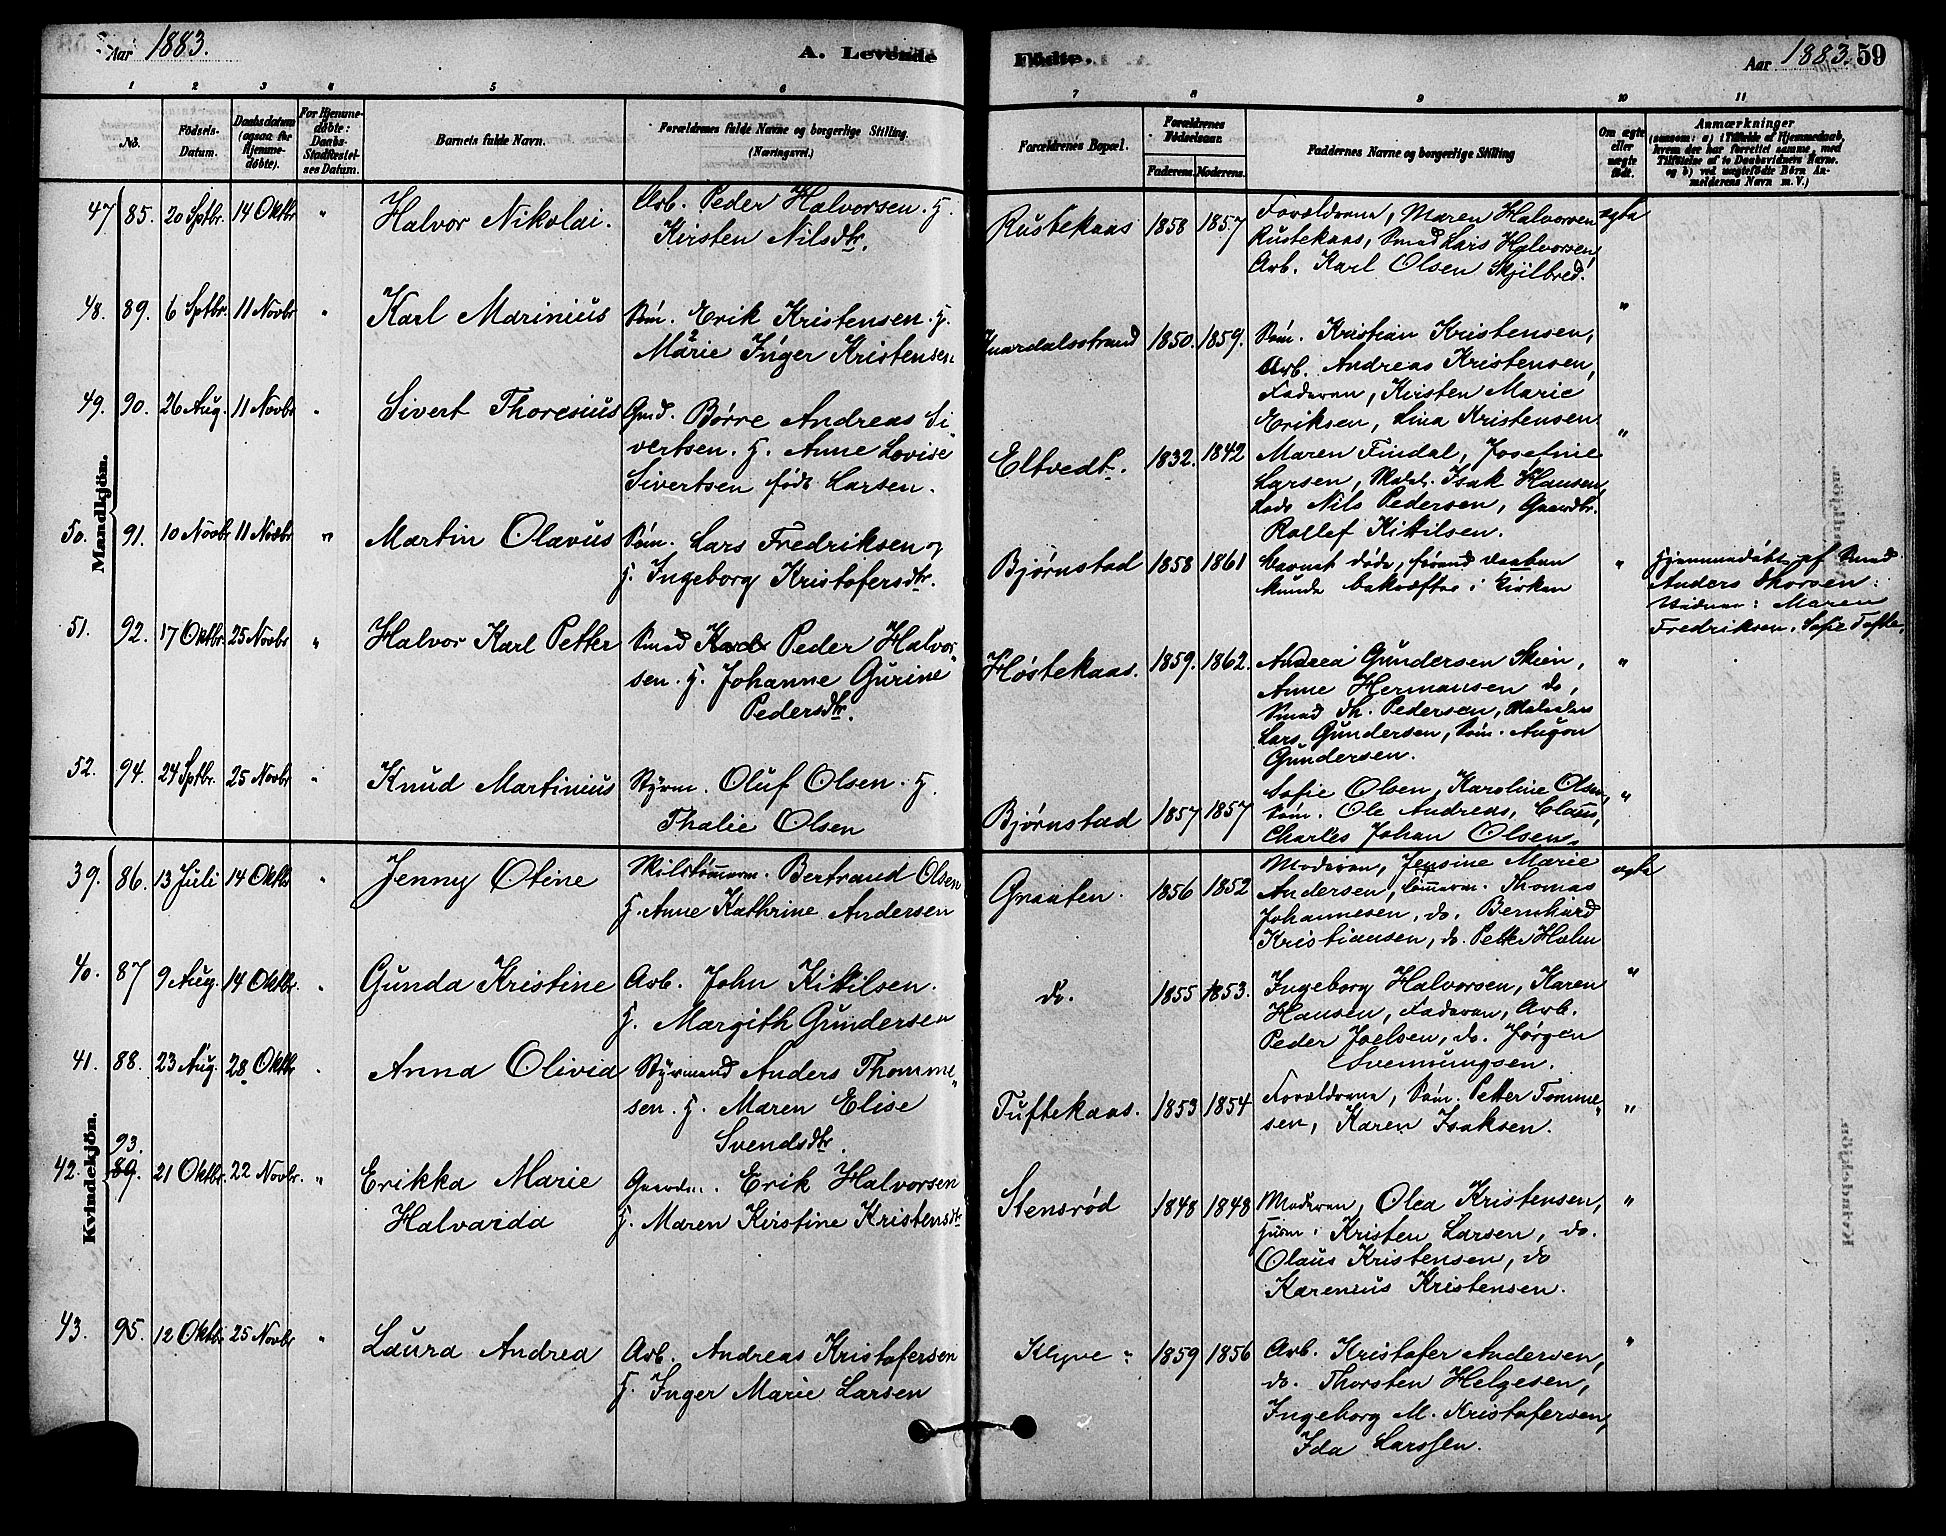 Aar 1883.
A. Levende
Fødte.
Aar 1883. 59
1 2 3 4 5 6 7 8 9 10 11
No.
Fødsels-Datum.
Daabsdatum (ogsaa for Hjemmedøbte).
For Hjemmedøbte: Daabs-Stadfæstelses Datum.
Barnets fulde Navn.
Forældrenes fulde Navne og borgerlige Stilling. (Næringsvei.)
Forældrenes Bopæl.
Forældrenes Fødselsaar.
Faderens. Moderens.
Faddernes Navne og borgerlige Stilling
Om ægte eller uægte født.
Anmærkninger
(saasom: a) i Tilfælde af Hjemmedaab, hvem der har forrettet samme, med Tilføielse af to Daabsvidners Navne, og b) ved uægtefødte Børn Anmelderens Navn m. V.)
Mandkjön.
47 85. 20 Sptbr. 14 Oktbr " Halvor Nikolai. Arb. Peder Halvorsen. H.
Kirsten Nilsdtr.
Rustekaas 1858 1857 Forældrene, Maren Halvorsen ægte
Rustekaas, Smed Lars Halvorsen,
Arb. Karl Olsen Skjilbred.
48. 89. 6 Sptbr. 11 Novbr " Karl Marinius Søm. Erik Kristensen. H.
Marie Inger Kristensen.
Knardalsstrand 1850. 1859. Søm. Kristian Kristensen, "
Arb. Andreas Kristensen,
Faderen, Kirsten Marie
Eriksen, Lina Kristensen
49. 90. 26 Aug. 11 Novbr " Sivert Thoresius Gmd. Børre Andreas Si-
vertsen. H. Anne Lovise
Sivertsen født Larsen.
Eltvedt. 1832. 1842 Maren Findal, Josefine "
Larsen, Matr. Isak Hansen,
Lods Nils Pedersen, Gaardbr.
Rollef Kittilsen.
50. 91. 10 Novbr 11 Novbr " Martin Olavus Søm. Lars Fredriksen og
H. Ingeborg Kristofersdtr.
Bjørnstad 1858 1861 Barnet døde, førend Daaben "
kunde bekræftes i Kirken
Hjemmedøbt af Smed
Anders Thorsen.
Vidner: Maren
Fredriksen, Sofie Tofte.
51. 92. 17 Oktbr. 25 Novbr " Halvor Karl Petter Smed Karl Peder Halvor-
sen. H. Johanne Gurine
Pedersdtr.
Høstekaas. 1859. 1862. Andrea Gundersen Skien, "
Anne Hermansen do,
Smed Th. Pedersen,
Lars Gundersen, Søm. Augon
Gundersen.
52. 94. 24 Sptbr. 25 Novbr " Knud Martinius Styrm. Oluf Olsen. H.
Thalie Olsen
Bjørnstad 1857 1857 Sofie Olsen, Karoline Olsen, "
Søm. Ole Andreas, Claus,
Charles Johan Olsen.
Kvindekjön.
39. 86. 13 Juli 14 Oktbr " Jenny Otine Bertrand Olsen
H. Anne Kathrine Andersen
Graaten. 1856 1852 Moderen, Jensine Marie ægte
Andersen, Tømmerm. Thomas
Johannesen, do. Bernhard
Kristiansen, do. Petter Holm
40. 87 9 Aug. 14 Oktbr. " Gunda Kristine Arb. John Kittilsen.
H. Margith Gundersen
do. 1855 1853. Ingeborg Halvorsen, Karen "
Hansen, Faderen, Arb.
Peder Joelsen, do. Jørgen
Svennungsen.
41. 88. 23 Aug. 28 Oktbr " Anna Olivia Styrmand Anders Thomme-
sen. H. Maren Elise
Svendsdtr.
Tuftekaas. 1853 1854 Forældrene, Søm. Petter Tomme- "
sen, Karen Isaksen.
93.
42. 89. 21 Oktbr. 22 Novbr. " Erikka Marie Gaardm. Erik Halvorsen
Halvarda H. Maren Kirstine Kristensdtr
Stensrød 1848 1848 Moderen, Olea Kristensen, "
Husm. Kristen Larsen, do.
Olaus Kristensen, do
Karenius Kristensen.
43. 95. 12 Oktbr 25 Novbr " Laura Andrea Arb. Andreas Kristofersen
H. Inger Marie Larsen
Klyve " 1859 1856 Arb. Kristofer Andersen, "
do. Thorsten Helgesen,
Ingeborg M. Kristofersen,
Ida Larssen.